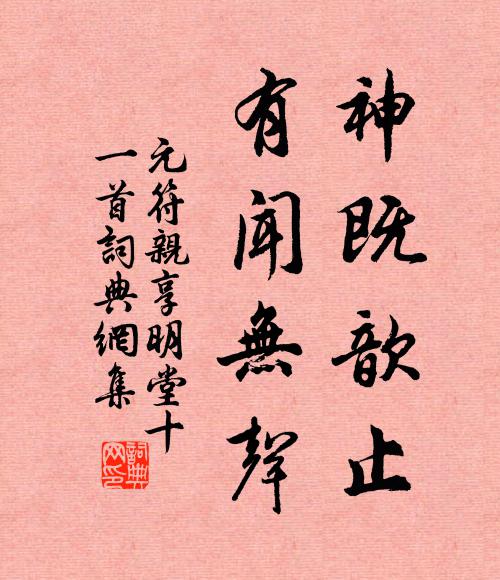 神既歆止
有聞無聲
元符親享明堂十
一首詞典網集
詞典
网印